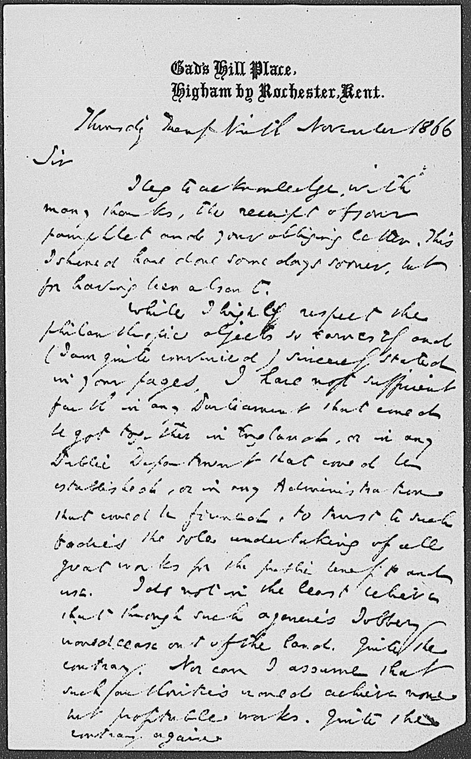 Gad's Hill Place,
Higham by Rochester, Kent.
Thursday Twenty Ninth November 1866
Sir
I beg to acknowledge, with
many thanks, the receipt of your
pamphlet and your obliging letter. This
I should have done some days sooner, but
for having been absent.
While I highly respect the
philanthropic objects so earnestly and
(I am quite convinced) sincerely stated
in your pages, I have not sufficient
faith in any Parliament that could
be got together in England, or in any
Public Department that could be
established, or in any Administration
that could be formed, to trust to such
bodies the sole undertaking of all
great works for the public benefit and
use. I do not in the least believe
that through such agencies Jobbery
would cease out of the land. Quite the
contrary. Nor can I assume that
such authorities would achieve none
but profitable works. Quite the
contrary again.